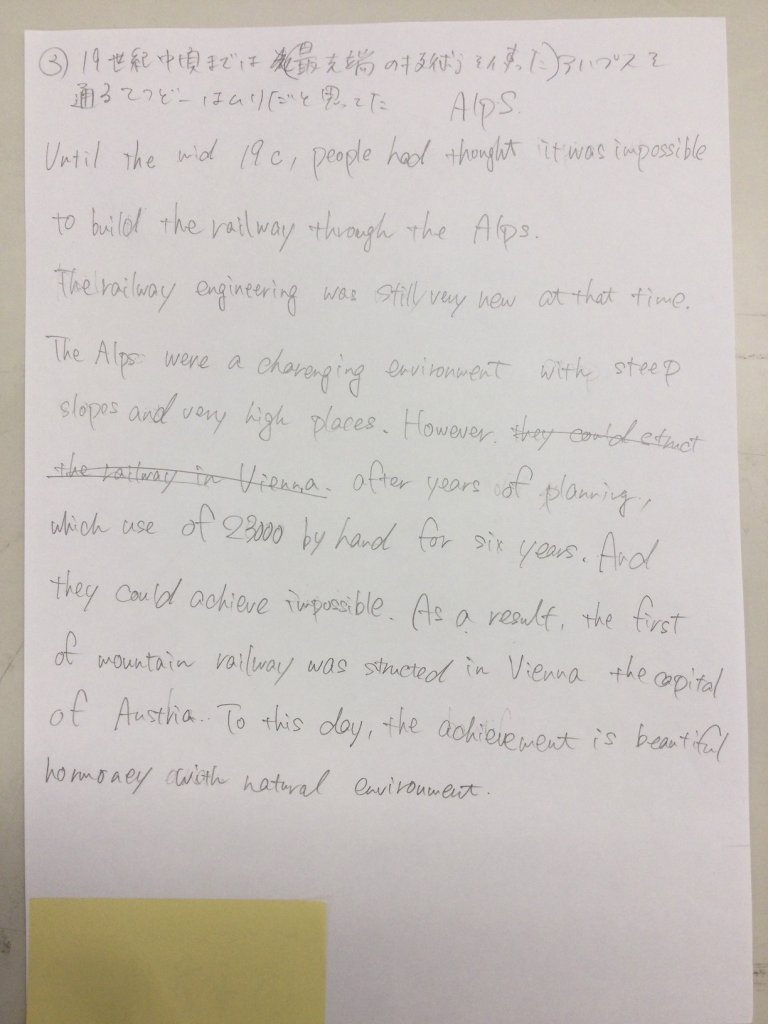 ③ 19世紀中頃までは 最先端のぎじゅつを使った)アルプスを
通るてつどーはムリだと思ってた Alps.
Until the mid 19c, people had thought it was impossible
to build the railway through the Alps.
The railway engineering was still very new at that time.
The Alps were a charenging environment with steep
slopes and very high places. However, they could struct
the railway in Vienna. after years of planning,
which use of 23000 by hand for six years. And
they could achieve impossible. As a result, the first
of mountain railway was structed in Vienna the capital
of Austria. To this day, the achievement is beautiful
hormoney with natural environment.